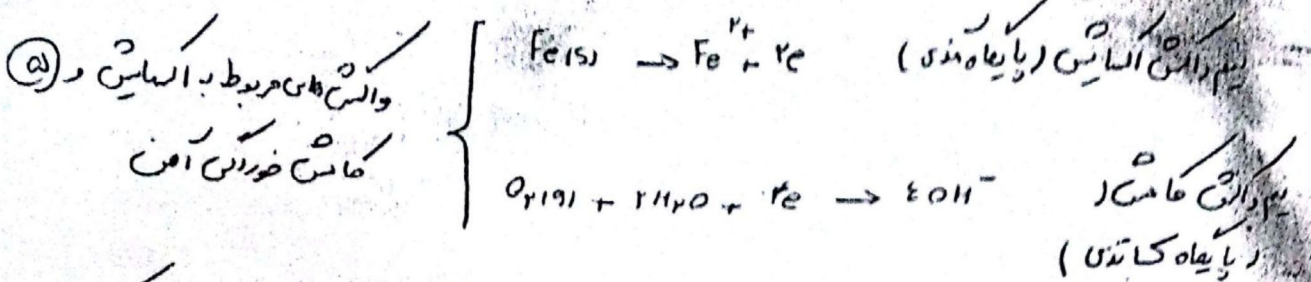 ۵) واکنش های مربوط به اکسایش و
کاهش خوردگی آهن
Fe(s) → Fe²⁺ + ۲e نیم واکنش اکسایش (پایگاه آندی)
O₂(g) + ۲H₂O + ۴e → ۴OH⁻ نیم واکنش کاهش (
(پایگاه کاتدی)